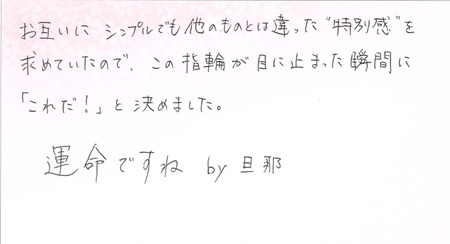 お互いに シンプルでも他のものとは違った“特別感”を
求めていたので、この指輪が目に止まった瞬間に
「これだ!」と決めました。
運命ですね by 旦那